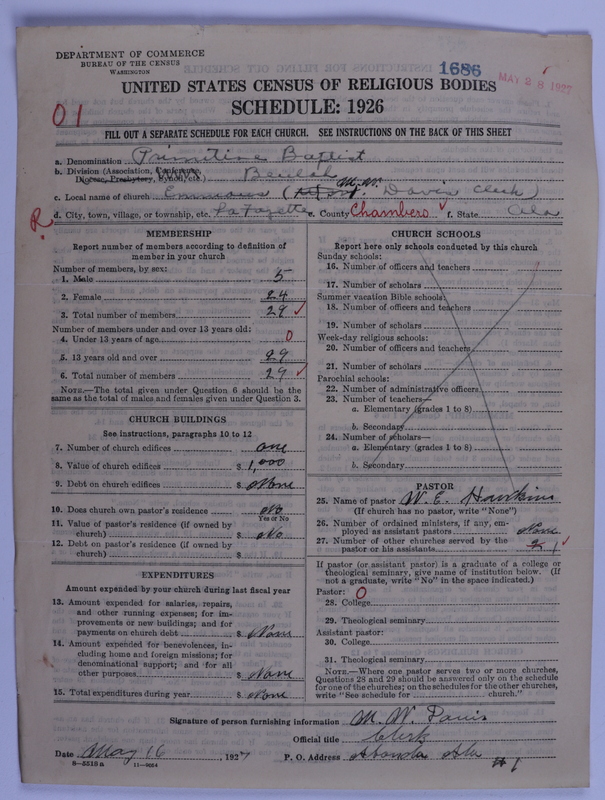 DEPARTMENT OF COMMERCE
BUREAU OF THE CENSUS
WASHINGTON
1686
MAY 28 1927
UNITED STATES CENSUS OF RELIGIOUS BODIES
SCHEDULE: 1926
01
FILL OUT A SEPARATE SCHEDULE FOR EACH CHURCH. SEE INSTRUCTIONS ON THE BACK OF THIS SHEET
a. Denomination Primitive Baptist
b. Division (Association, Conference, Diocese, Presbytery, Synod, etc.) Beulah
c. Local name of church Emmaus ( M. W. Davis Clerk)
R
d. City, town, village, or township, etc. LaFayette e. County Chambers f. State Ala
MEMBERSHIP
Report number of members according to definition of member in your church
Number of members, by sex:
1. Male 5
2. Female 24
3. Total number of members 29
Number of members under and over 13 years old:
4. Under 13 years of age 0
5. 13 years old and over 29
6. Total number of members 29
NOTE.—The total given under Question 6 should be the same as the total of males and females given under Question 3.
CHURCH BUILDINGS
See instructions, paragraphs 10 to 12
7. Number of church edifices one
8. Value of church edifices $ 1,000
9. Debt on church edifices $ None
10. Does church own pastor's residence No
Yes or No
11. Value of pastor's residence (if owned by church) $ No
12. Debt on pastor's residence (if owned by church) $
EXPENDITURES
Amount expended by your church during last fiscal year
13. Amount expended for salaries, repairs, and other running expenses; for improvements or new buildings; and for payments on church debt $ None
14. Amount expended for benevolences, including home and foreign missions; for denominational support; and for all other purposes $ None
15. Total expenditures during year $ None
CHURCH SCHOOLS
Report here only schools conducted by this church
Sunday schools:
16. Number of officers and teachers
17. Number of scholars
Summer vacation Bible schools:
18. Number of officers and teachers
19. Number of scholars
Week-day religious schools:
20. Number of officers and teachers
21. Number of scholars
Parochial schools:
22. Number of administrative officers
23. Number of teachers—
a. Elementary (grades 1 to 8)
b. Secondary
24. Number of scholars—
a. Elementary (grades 1 to 8)
b. Secondary
PASTOR
25. Name of pastor W. E. Hawkins
(If church has no pastor, write "None")
26. Number of ordained ministers, if any, employed as assistant pastors None
27. Number of other churches served by the pastor or his assistants
If pastor (or assistant pastor) is a graduate of a college or theological seminary, give name of institution below. (If not a graduate, write "No" in the space indicated.)
Pastor: O
28. College
29. Theological seminary
Assistant pastor:
30. College
31. Theological seminary
NOTE.—Where one pastor serves two or more churches, Questions 28 and 29 should be answered only on the schedule for one of the churches; on the schedules for the other churches, write "See schedule for church."
Signature of person furnishing information M. W. Davis
Official title Clerk
Date May 16, 1927 P. O. Address Ala # 1
8—5518 a 11—9664